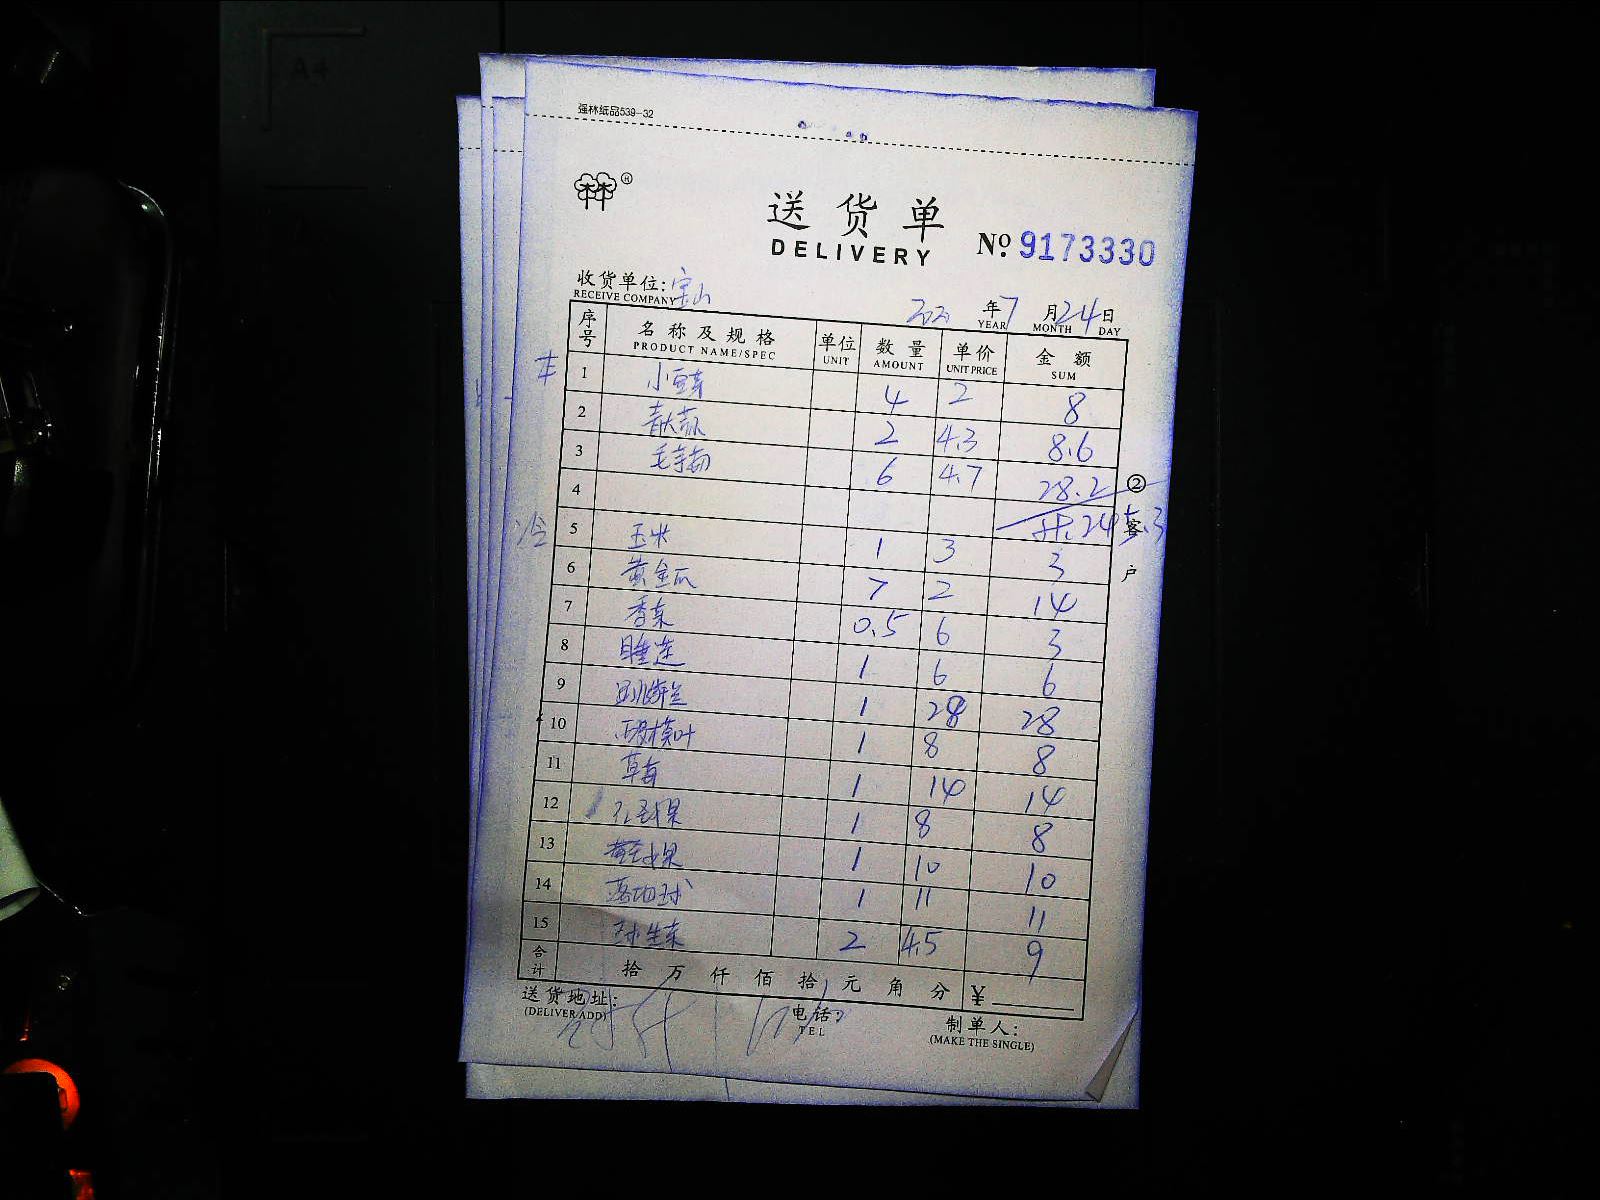 A4
强林纸品539-32
送货单
DELIVERY
№ 9173330
收货单位: 宝山
RECEIVE COMPANY
年 7 月 24 日
YEAR MONTH DAY
序号 名称及规格 单位 数量 单价 金额
PRODUCT NAME/SPEC UNIT AMOUNT UNIT PRICE SUM
1 小豆芽 4 2 8
2 2 4.3 8.6
3 毛 6 4.7 28.2
4 共:245.3
冷 5 玉米 1 3 3
6 黄金瓜 7 2 14
7 香菜 0.5 6 3
8 睡莲 1 6 6
9 1 28 28
10 叶 1 8 8
11 草莓 1 14 14
12 果 1 8 8
13 果 1 10 10
14 球 1 11 11
15 球生菜 2 4.5 9
合计 拾万仟佰拾元角分 ¥
② 客户
送货地址:
(DELIVER ADD)
电话:
TEL
制单人:
(MAKE THE SINGLE)